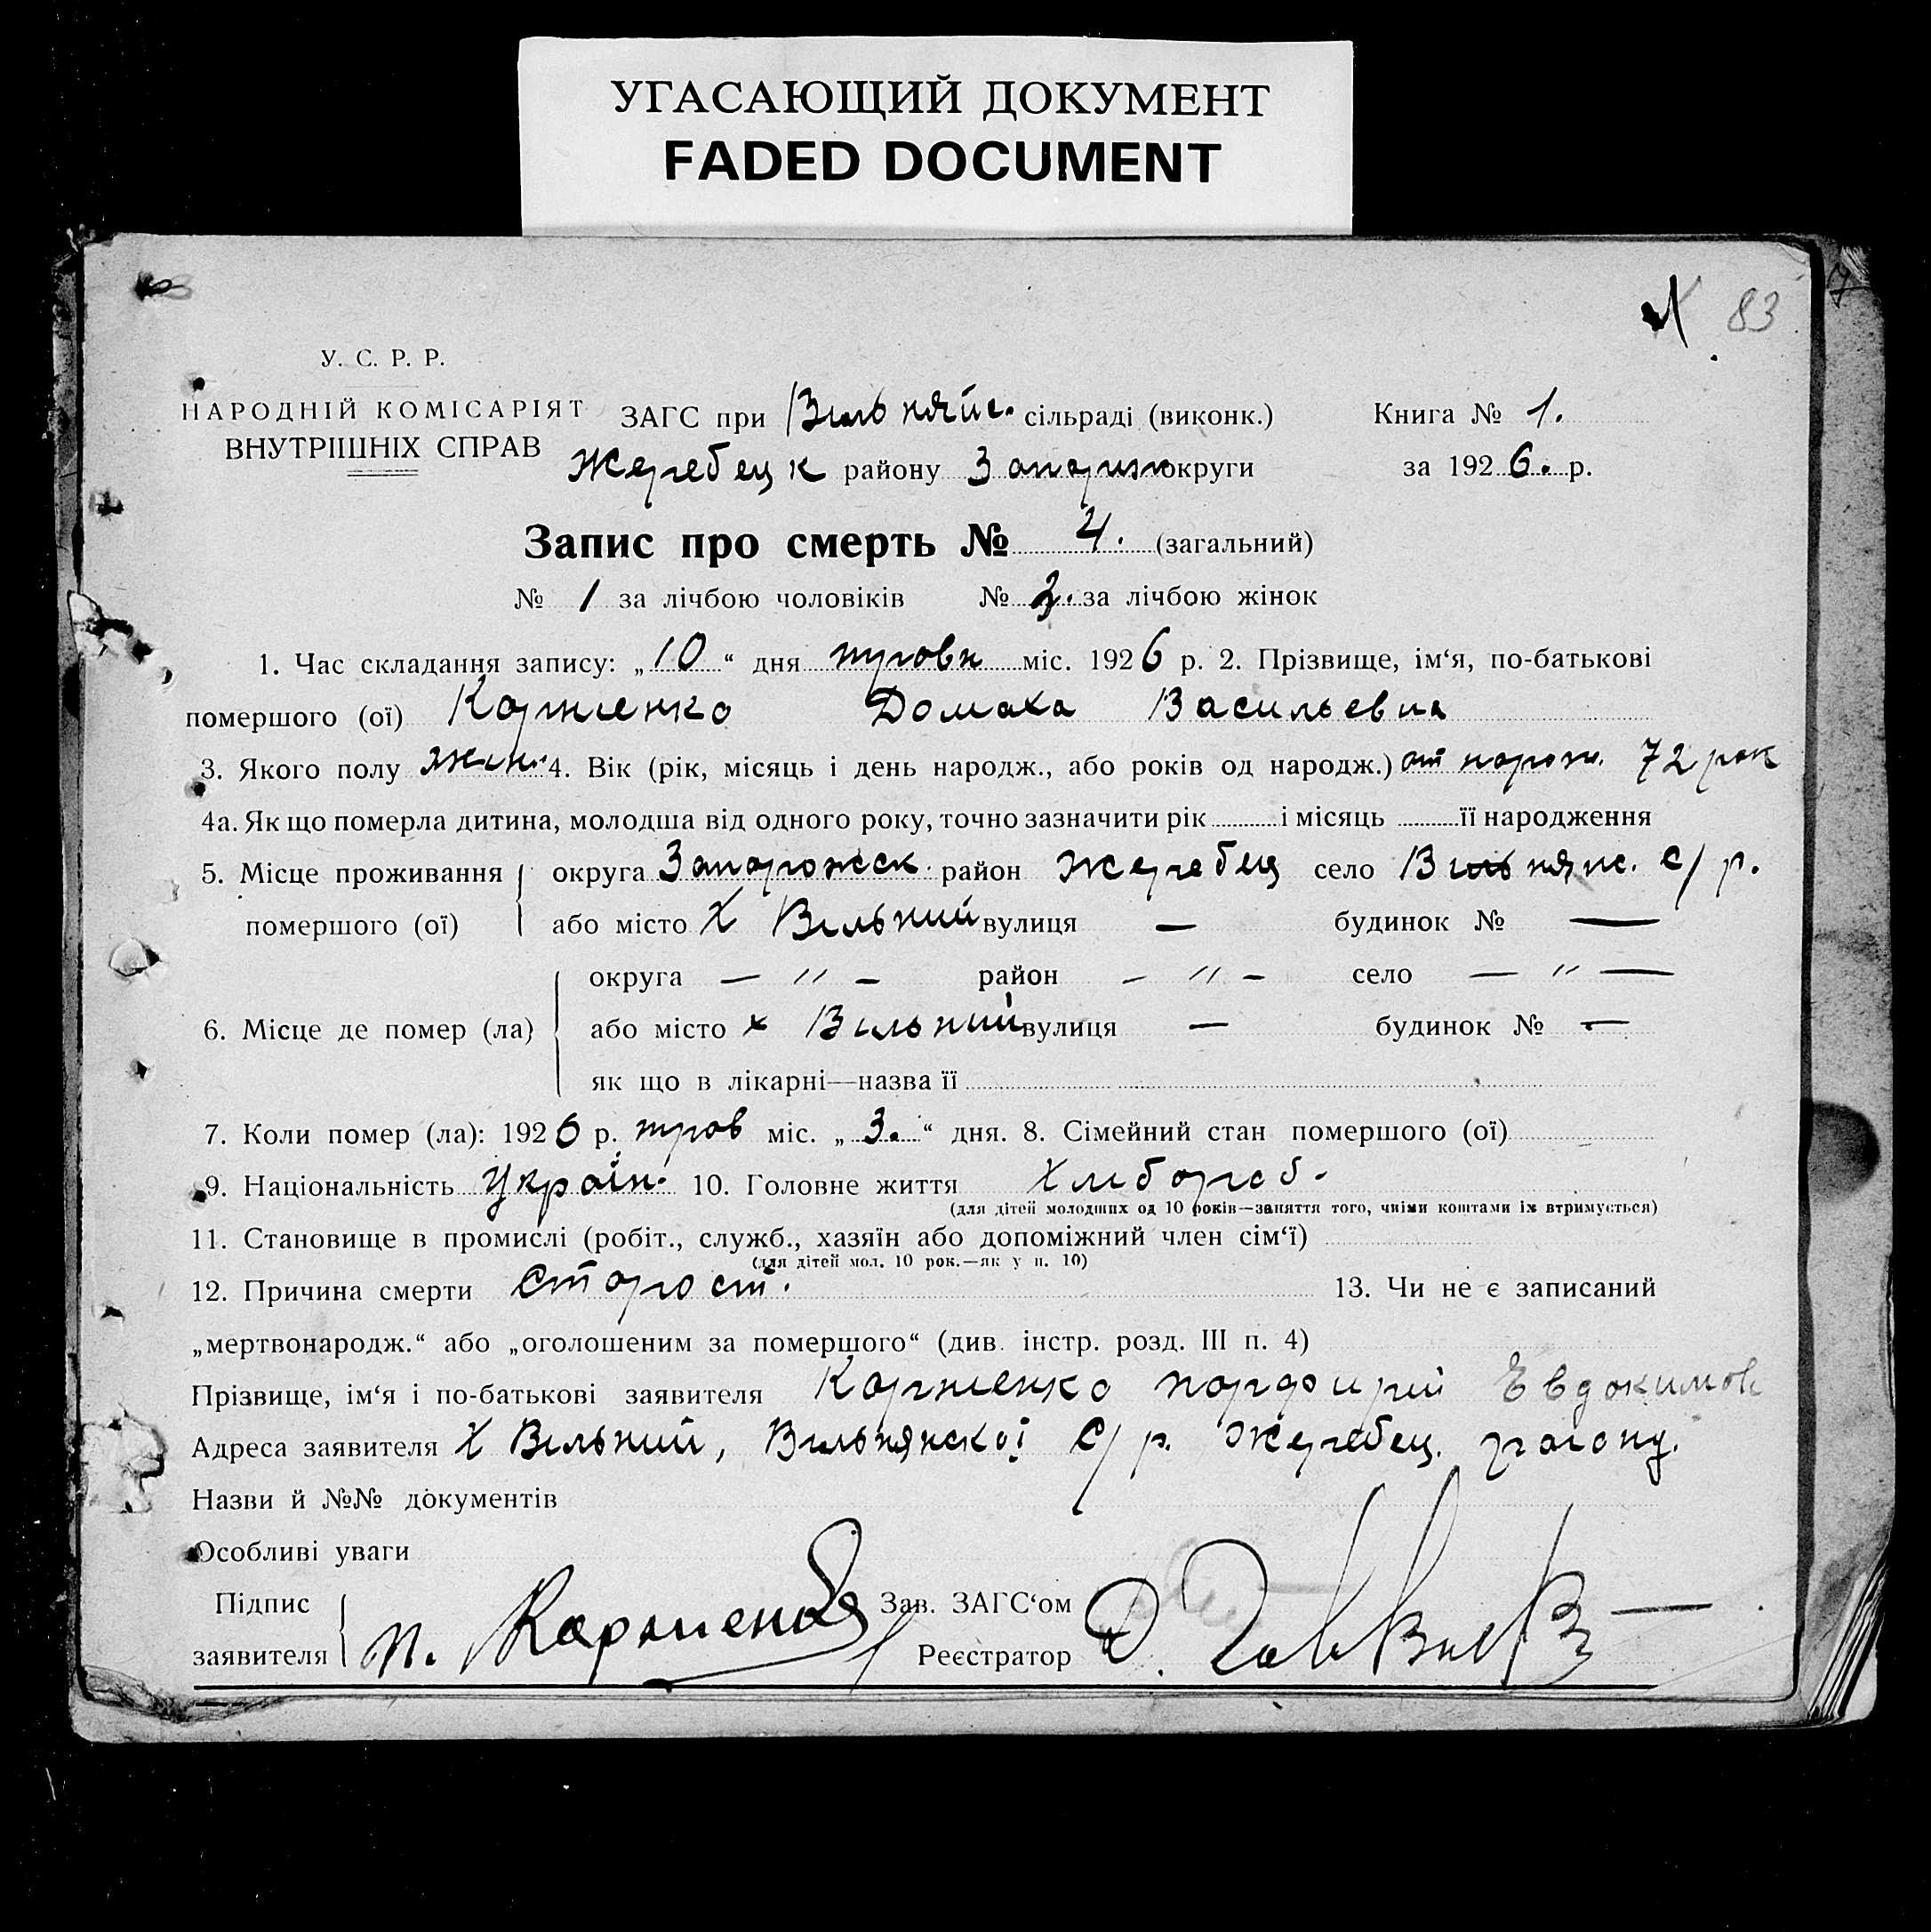 УГАСАЮЩИЙ ДОКУМЕНТ
FADED DOCUMENT
83
У. С. Р. Р.
НАРОДНІЙ КОМІСАРІЯТ
ВНУТРІШНІХ СПРАВ
ЗАГС при Вільняйс. сільраді (виконк.)
Книга № 1.
Жеребецк району Запориж округи
за 1926. р.
Запис про смерть № 4. (загальний)
№ 1 за лічбою чоловіків № 3. за лічбою жінок
1. Час складання запису: „10“ дня травн міс. 1926 р. 2. Прізвище, ім‘я, по-батькові
помершого (ої) Домаха Васильевна
3. Якого полу жін. 4. Вік (рік, місяць і день народж., або років од народж.) от нарож. 72 рок
4а. Як що померла дитина, молодша від одного року, точно зазначити рік і місяць її народження
5. Місце проживання округа Запорожск. район Жеребец село Вільнянс. с/р.
помершого (ої) або місто Х Вільний вулиця — будинок № —
округа — „ — район — „ — село — „ —
6. Місце де помер (ла) або місто х Вільний вулиця — будинок № —
як що в лікарні—назва її
7. Коли помер (ла): 1926 р. трав міс. „3.“ дня. 8. Сімейний стан помершого (ої)
9. Національність Україн. 10. Головне життя Хлібороб.
(для дітей молодших од 10 років—заняття того, чиіми коштами їх втримується)
11. Становище в промислі (робіт., служб., хазяїн або допоміжний член сім‘ї)
(для дітей мол. 10 рок.—як у п. 10)
12. Причина смерти Старост. 13. Чи не є записаний
„мертвонародж.“ або „оголошеним за помершого“ (див. інстр. розд. III п. 4)
Прізвище, ім‘я і по-батькові заявителя Порфирий Евдокимов
Адреса заявителя Х Вільний, Вільнянскоі с/р. Жеребец. району.
Назви й №№ документів
Особливі уваги
Підпис
заявителя п.
Зав. ЗАГС‘ом
Реєстратор Д.